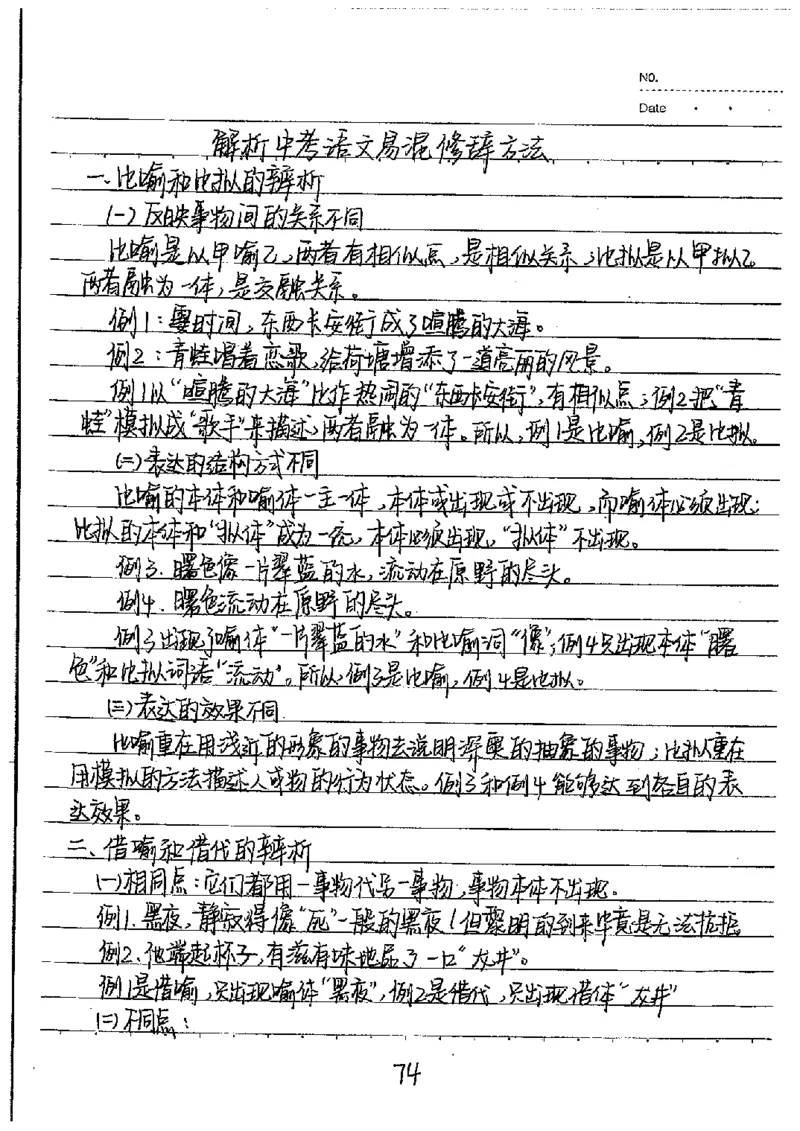 NO.
Date
解析中考语文易混修辞方法
一、比喻和比拟的辨析
(一)反映事物间的关系不同
比喻是以甲喻乙,两者有相似点,是相似关系;比拟是以甲拟乙
两者融为一体,是交融关系。
例1:霎时间,东西长安街成了喧腾的大海。
例2:青蛙唱着恋歌,给荷塘增添了一道亮丽的风景。
例1以“喧腾的大海”比作热闹的“东西长安街”,有相似点;例2把“青
蛙”模拟成“歌手”来描述,两者融为一体。所以,例1是比喻,例2是比拟。
(二)表达的结构方式不同
比喻的本体和喻体一主一体,本体或出现或不出现,而喻体必须出现;
比拟的本体和“拟体”成为一统,本体必须出现,“拟体”不出现。
例3.曙色像一片翠蓝的水,流动在原野的尽头。
例4.曙色流动在原野的尽头。
例3出现了喻体“一片翠蓝的水”和比喻词“像”;例4只出现本体“曙
色”和比拟词语“流动”。所以,例3是比喻,例4是比拟。
(三)表达的效果不同
比喻重在用浅近的形象的事物去说明深奥的抽象的事物;比拟重在
用模拟的方法描述人或物的行为状态。例3和例4能够达到各自的表
达效果。
二、借喻和借代的辨析
(一)相同点:它们都用一事物代另一事物,事物本体不出现。
例1.黑夜,静寂得像“死”一般的黑夜!但黎明的到来毕竟是无法抗拒
例2、他端起杯子,有滋有味地品了一口“龙井”。
例1是借喻,只出现喻体“黑夜”,例2是借代,只出现借体“龙井”
(二)不同点:
74